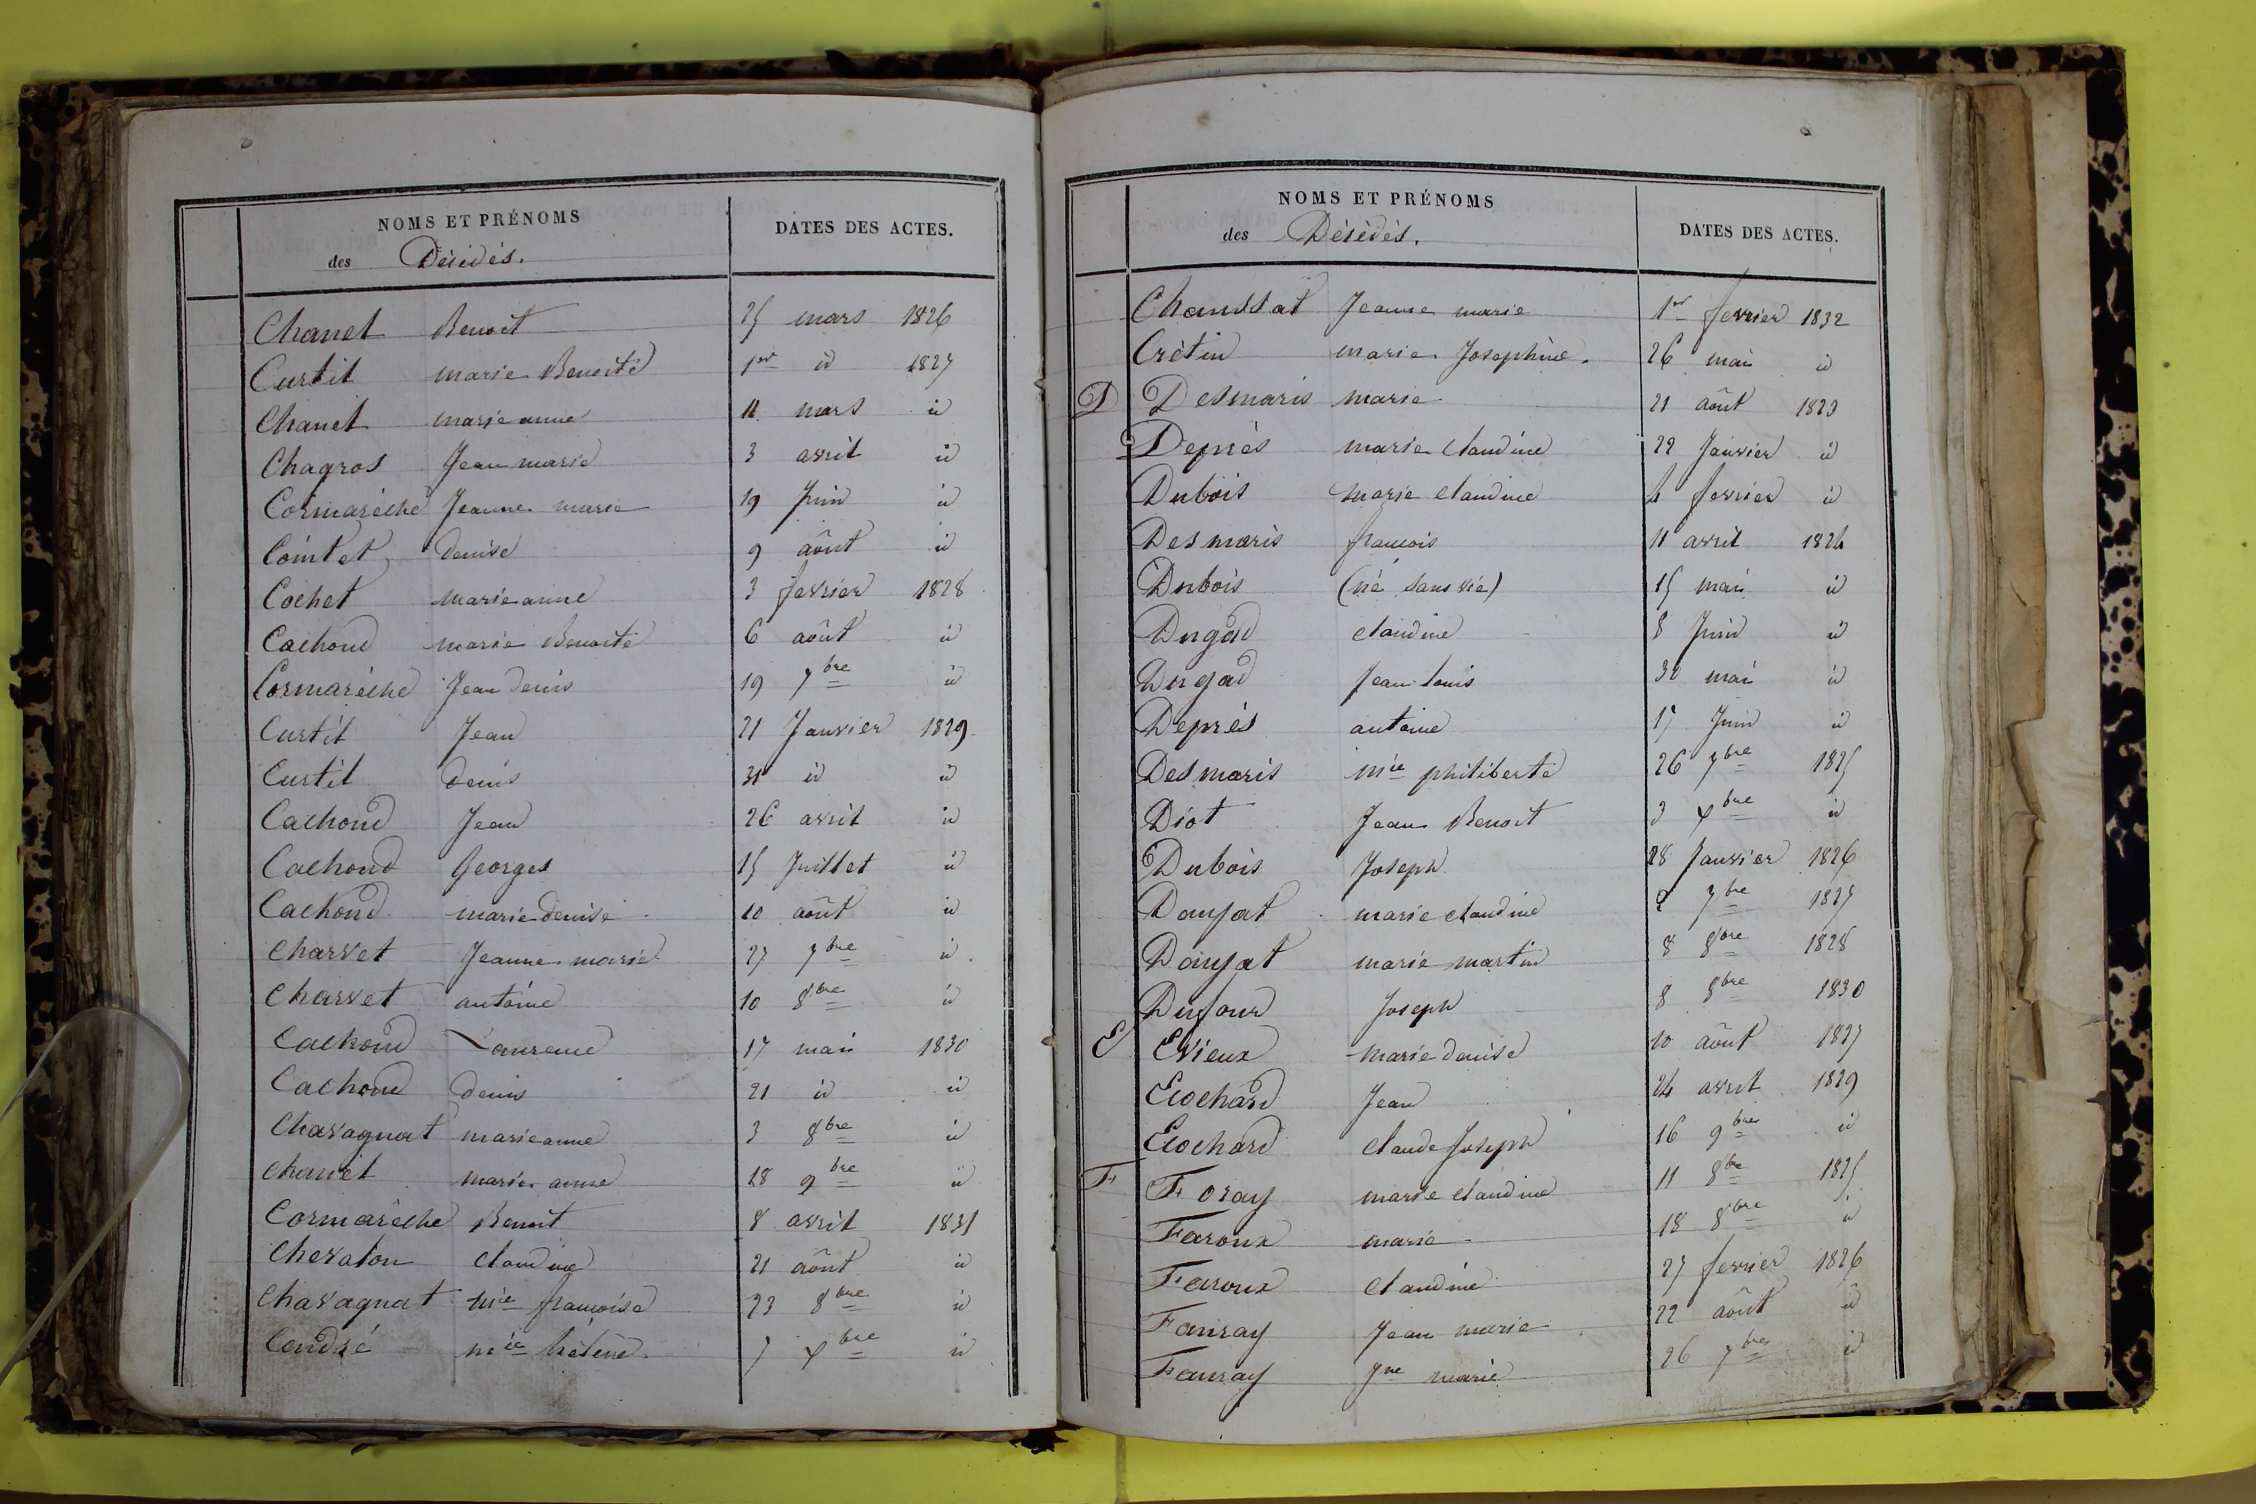 NOMS ET PRÉNOMS
DATES DES ACTES.
des Décédés.
Chanel Benoit 25 mars 1826
Curtil marie Benoite 1er id 1827
Chanel marie anne 11 mars id
Chagros Jean marie 3 avril id
Cormarêche Jeanne marie 19 Juin id
Cointet denise 9 août id
Cochet marie anne 3 fevrier 1828
Cachond marie Benoite 6 août id
Cormarêche Jean denis 19 7bre id
Curtil Jean 21 Janvier 1829
Curtil denis 31 id id
Cachond Jean 26 avril id
Cachond Georges 15 Juillet id
Cachond marie denise 10 août id
Charvet Jeanne marie 27 7bre id
Charvet antoine 10 8bre id
Cachond Laurence 17 mai 1830
Cachond denis 21 id id
Chavagnat marie anne 3 8bre id
Chanel marie anne 28 9bre id
Cormarêche Benoit 8 avril 1831
Chevalon Claudine 21 août id
Chavagnat mie françoise 23 8bre id
Condré mie hélène 7 Xbre id
NOMS ET PRÉNOMS
DATES DES ACTES.
des Décédés.
Chaussat Jeanne marie 1er fevrier 1832
Crétin marie Josephine 26 mai id
D Desmaris marie 21 août 1823
Deprés marie claudine 22 Janvier id
Dubois marie claudine 4 fevrier id
Desmaris francois 11 avril 1824
Dubois (né sans vie) 15 mai id
Dugad claudine 8 Juin id
Dugad Jean louis 30 mai id
Deprés antoine 17 Juin id
Desmaris mie philiberte 26 7bre 1825
Diot Jean Benoit 3 Xbre id
Dubois Joseph 28 Janvier 1826
Daujat marie claudine 2 7bre 1827
Daujat marie martin 8 8bre 1828
Dufour Joseph 8 8bre 1830
E Evieux marie denise 10 août 1827
Ecochard Jean 24 avril 1829
Ecochard claude Joseph 16 9bre id
F Foray marie claudine 11 8bre 1825
Faroux marie 18 8bre id
Faroux claudine 27 fevrier 1826
Fauray Jean marie 22 août id
Fauray Jne marie 26 7bre id